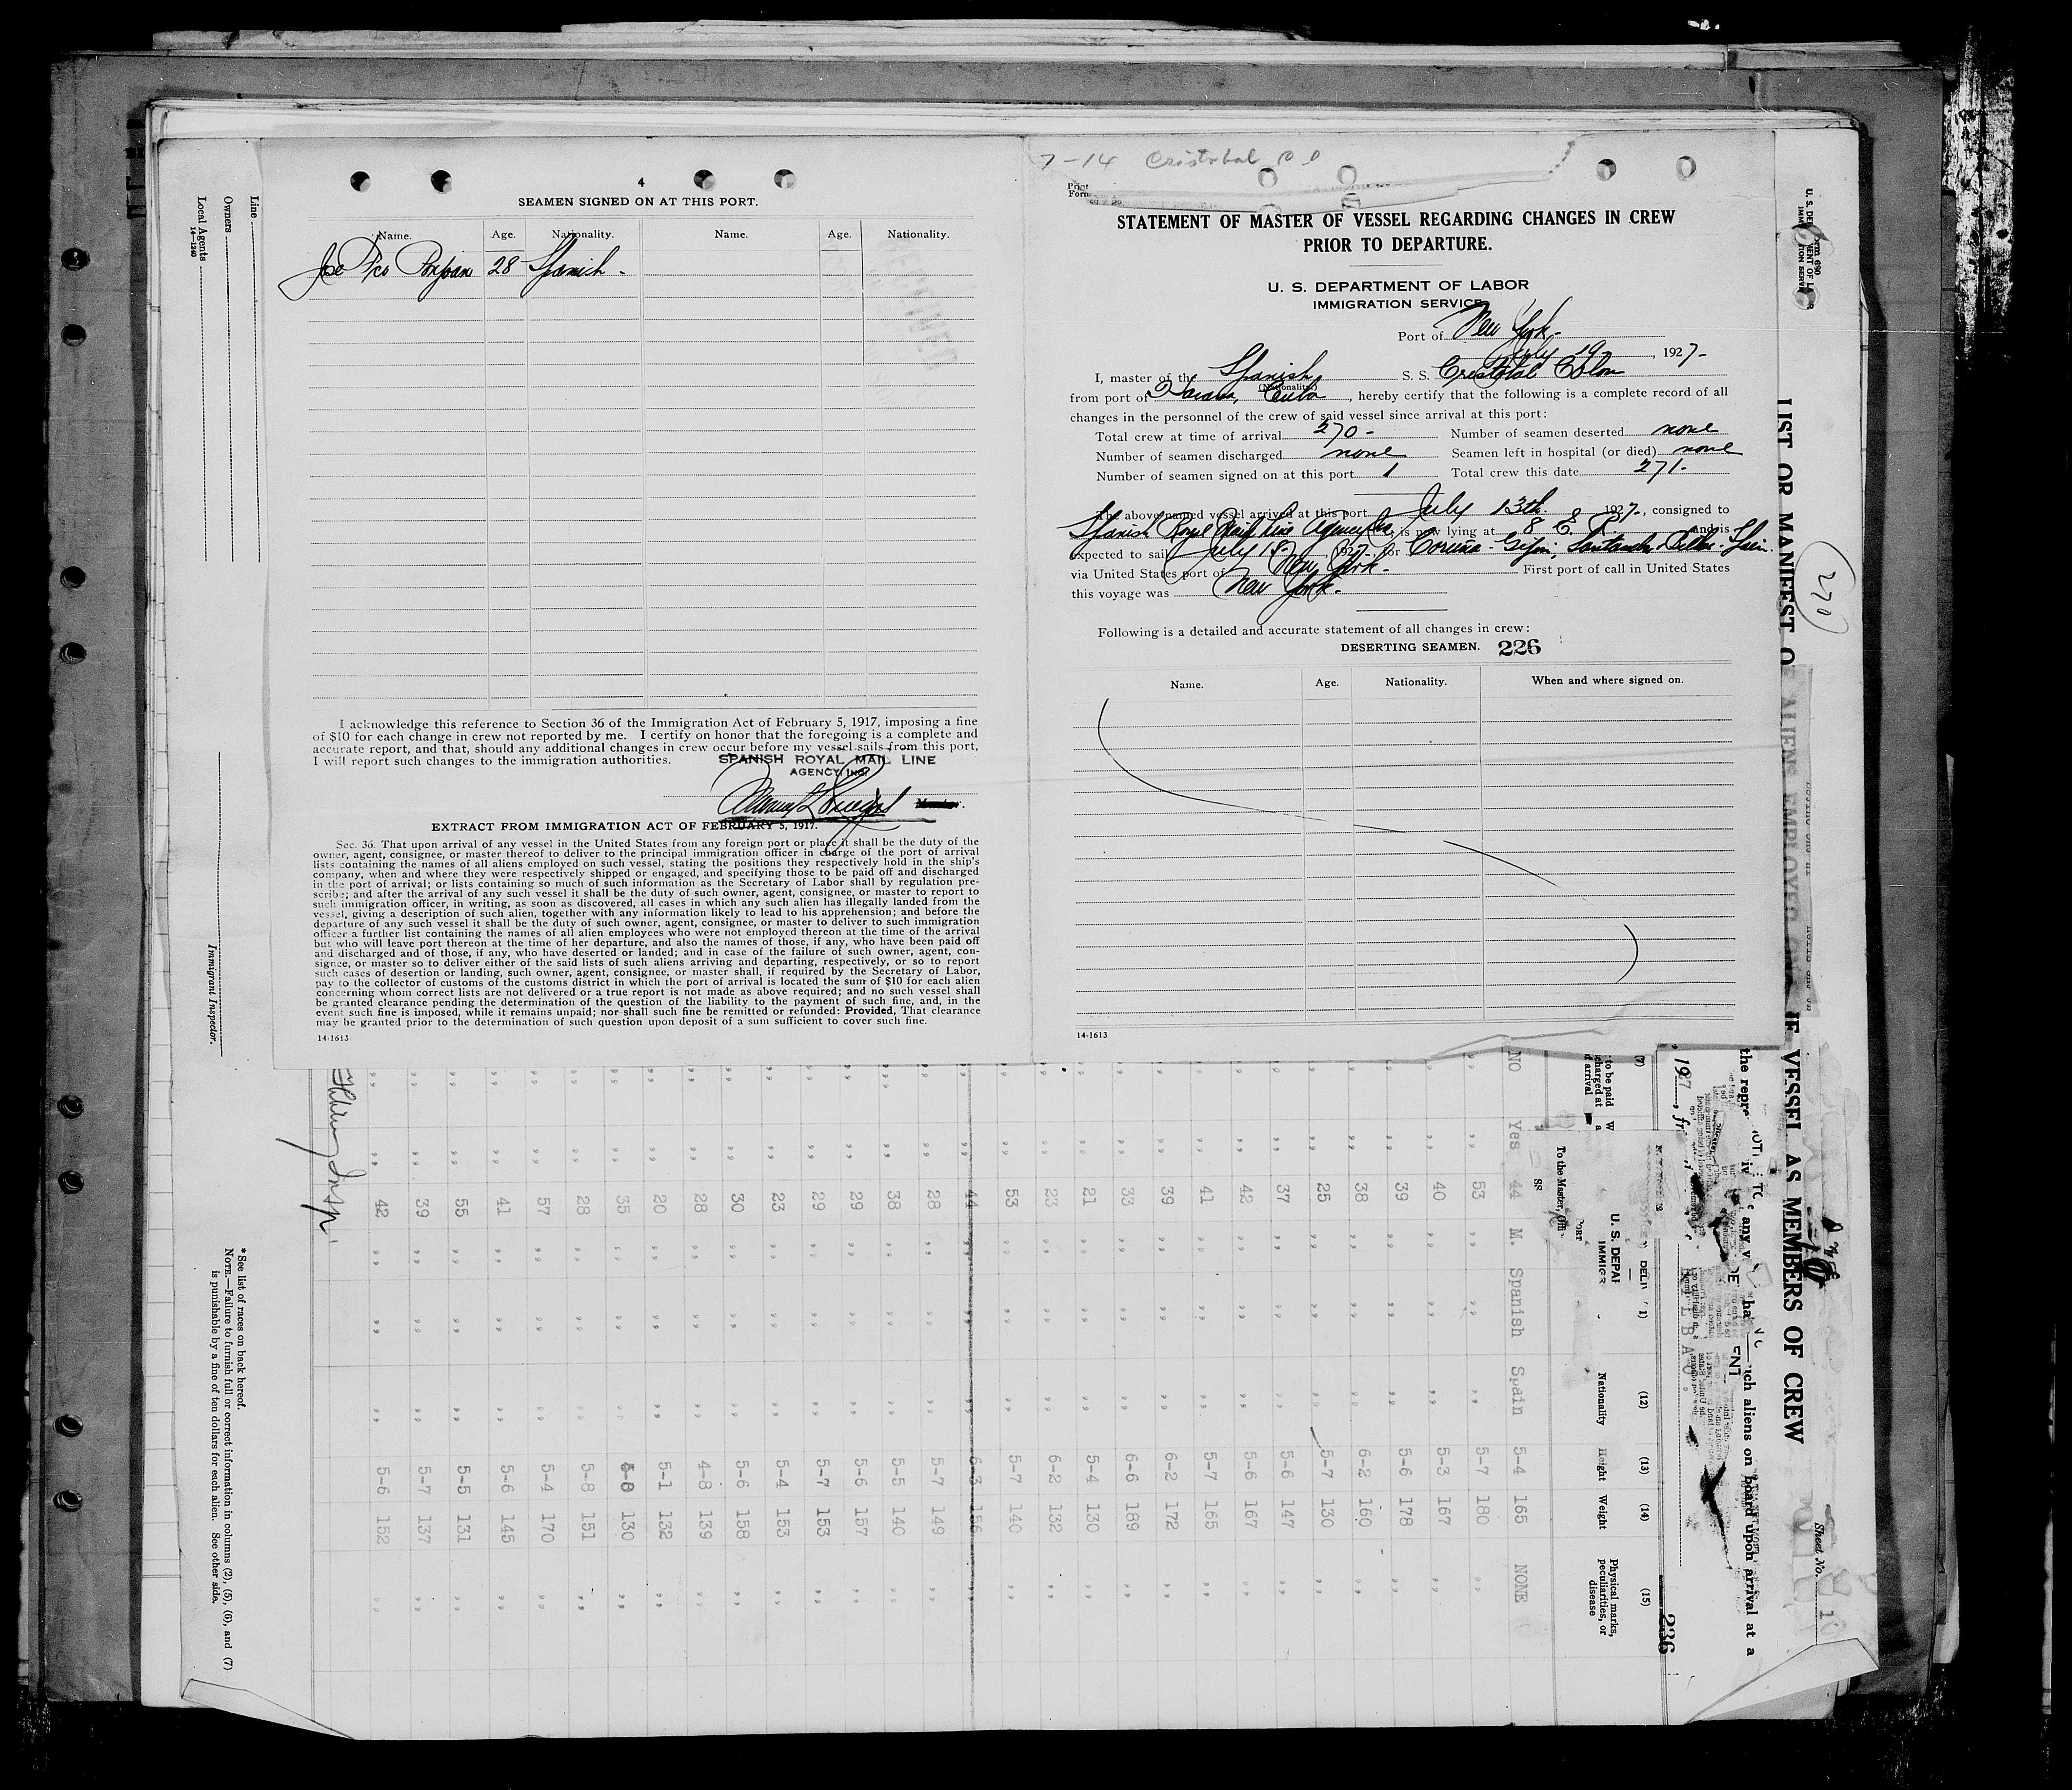 4
SEAMEN SIGNED ON AT THIS PORT.
Name. Age. Nationality. Name. Age. Nationality.
Jose 28 Spanish -
I acknowledge this reference to Section 36 of the Immigration Act of February 5, 1917, imposing a fine
of $10 for each change in crew not reported by me. I certify on honor that the foregoing is a complete and
accurate report, and that, should any additional changes in crew occur before my vessel sails from this port,
I will report such changes to the immigration authorities.
SPANISH ROYAL MAIL LINE
AGENCY INC.
EXTRACT FROM IMMIGRATION ACT OF FEBRUARY 5, 1917.
Sec. 36. That upon arrival of any vessel in the United States from any foreign port or place it shall be the duty of the
owner, agent, consignee, or master thereof to deliver to the principal immigration officer in charge of the port of arrival
lists containing the names of all aliens employed on such vessel, stating the positions they respectively hold in the ship's
company, when and where they were respectively shipped or engaged, and specifying those to be paid off and discharged
in the port of arrival; or lists containing so much of such information as the Secretary of Labor shall by regulation pre-
scribe; and after the arrival of any such vessel it shall be the duty of such owner, agent, consignee, or master to report to
such immigration officer, in writing, as soon as discovered, all cases in which any such alien has illegally landed from the
vessel, giving a description of such alien, together with any information likely to lead to his apprehension; and before the
departure of any such vessel it shall be the duty of such owner, agent, consignee, or master to deliver to such immigration
officer a further list containing the names of all alien employees who were not employed thereon at the time of the arrival
but who will leave port thereon at the time of her departure, and also the names of those, if any, who have been paid off
and discharged and of those, if any, who have deserted or landed; and in case of the failure of such owner, agent, con-
signee, or master so to deliver either of the said lists of such aliens arriving and departing, respectively, or so to report
such cases of desertion or landing, such owner, agent, consignee, or master shall, if required by the Secretary of Labor,
pay to the collector of customs of the customs district in which the port of arrival is located the sum of $10 for each alien
concerning whom correct lists are not delivered or a true report is not made as above required; and no such vessel shall
be granted clearance pending the determination of the question of the liability to the payment of such fine, and, in the
event such fine is imposed, while it remains unpaid; nor shall such fine be remitted or refunded: Provided, That clearance
may be granted prior to the determination of such question upon deposit of a sum sufficient to cover such fine.
14-1613
7-14 Cristobal
STATEMENT OF MASTER OF VESSEL REGARDING CHANGES IN CREW
PRIOR TO DEPARTURE.
U. S. DEPARTMENT OF LABOR
IMMIGRATION SERVICE
Port of New York -
July 19, 1927-
I, master of the Spanish S. S. Cristobal Colon
(Nationality)
from port of Havana, Cuba, hereby certify that the following is a complete record of all
changes in the personnel of the crew of said vessel since arrival at this port:
Total crew at time of arrival 270 - Number of seamen deserted none
Number of seamen discharged none Seamen left in hospital (or died) none
Number of seamen signed on at this port 1 Total crew this date 271-
The above-named vessel arrived at this port July 13th. 1927-, consigned to
Spanish Royal Mail Line Agency Inc, is now lying at 8 E. R. and is
expected to sail July 19- 1927- for Coruña - Gijon, Santander, Bilbao - Spain.
via United States port of New York - First port of call in United States
this voyage was New York -
Following is a detailed and accurate statement of all changes in crew:
DESERTING SEAMEN. 226
Name. Age. Nationality. When and where signed on.
14-1613
LIST OR MANIFEST OF ALIENS EMPLOYED VESSEL AS MEMBERS OF CREW
270
Sheet No. 10
such aliens on board upon arrival at a
236
(12) (13) (14) (15)
Nationality Height Weight Physical marks, peculiarities, or disease
To the Master,
NO Yes 44 M. Spanish Spain 5-4 165 NONE
,, ,, 53 ,, ,, ,, 5-7 180 ,,
,, ,, 40 ,, ,, ,, 5-3 167 ,,
,, ,, 39 ,, ,, ,, 5-6 178 ,,
,, ,, 38 ,, ,, ,, 6-2 160 ,,
,, ,, 25 ,, ,, ,, 5-7 130 ,,
,, ,, 37 ,, ,, ,, 5-6 147 ,,
,, ,, 42 ,, ,, ,, 5-6 167 ,,
,, ,, 41 ,, ,, ,, 5-7 165 ,,
,, ,, 39 ,, ,, ,, 6-2 172 ,,
,, ,, 33 ,, ,, ,, 6-6 189 ,,
,, ,, 21 ,, ,, ,, 5-4 130 ,,
,, ,, 23 ,, ,, ,, 6-2 132 ,,
,, ,, 53 ,, ,, ,, 5-7 140 ,,
,, ,, 44 ,, ,, ,, 6-3 156 ,,
,, ,, 28 ,, ,, ,, 5-7 149 ,,
,, ,, 38 ,, ,, ,, 5-5 140 ,,
,, ,, 29 ,, ,, ,, 5-6 157 ,,
,, ,, 29 ,, ,, ,, 5-7 153 ,,
,, ,, 23 ,, ,, ,, 5-4 153 ,,
,, ,, 30 ,, ,, ,, 5-6 158 ,,
,, ,, 28 ,, ,, ,, 4-8 139 ,,
,, ,, 20 ,, ,, ,, 5-1 132 ,,
,, ,, 35 ,, ,, ,, 130 ,,
,, ,, 28 ,, ,, ,, 5-8 151 ,,
,, ,, 57 ,, ,, ,, 5-4 170 ,,
,, ,, 41 ,, ,, ,, 5-6 145 ,,
,, ,, 55 ,, ,, ,, 5-5 131 ,,
,, ,, 39 ,, ,, ,, 5-7 137 ,,
,, ,, 42 ,, ,, ,, 5-6 152 ,,
Insp
* See list of races on back hereof.
NOTE.—Failure to furnish full or correct information in columns (2), (5), (6), and (7)
is punishable by a fine of ten dollars for each alien. See other side.
Immigrant Inspector.
Line
Owners
Local Agents
14-1240